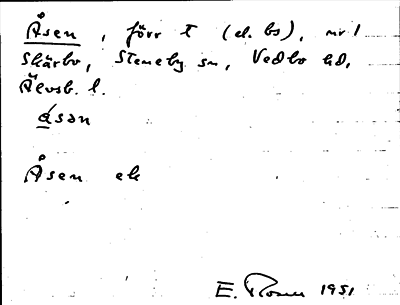 Åsen, förr t (el. bs), nr 1
Skärbo, Steneby sn, Vedbo hd,
Älvsb. l.
ásən
Åsen ek
E. Rosén 1951